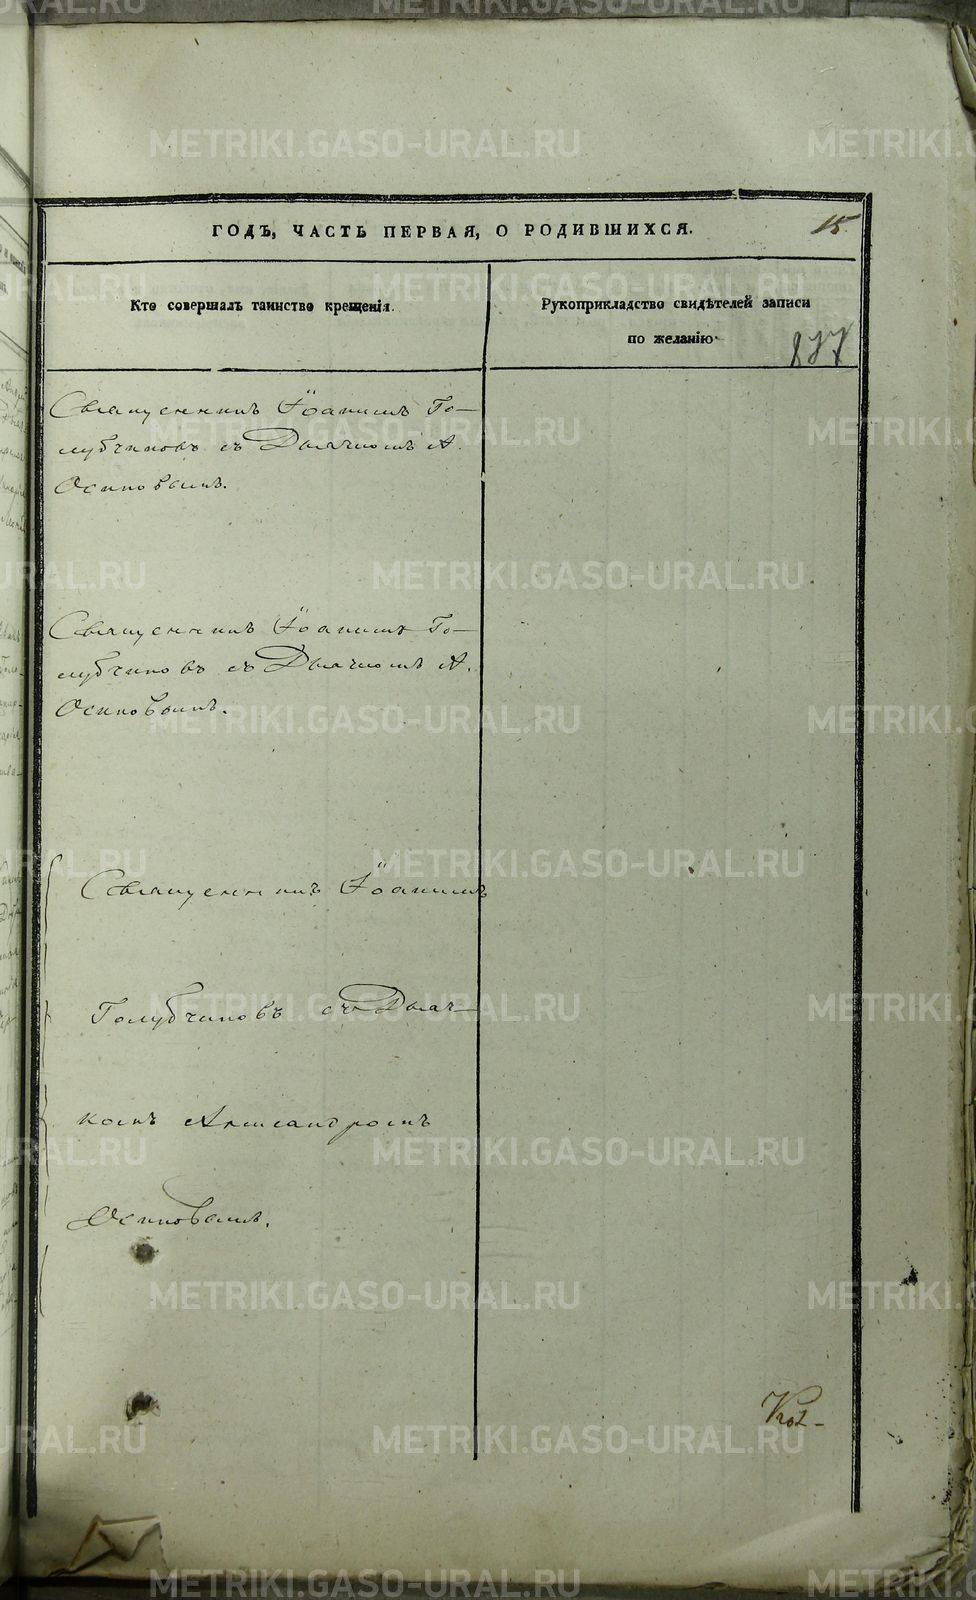 ГОДЪ, ЧАСТЬ ПЕРВАЯ, О РОДИВШИХСЯ. 15
Кто совершалъ таинство крещенія.
Рукоприкладство свидѣтелей записи
по желанію
Священникъ Іоаннъ Го-
лубчиковъ съ Дьячкомъ А.
Осиповымъ.
Священникъ Іоаннъ Го-
лубчиковъ съ Дьячкомъ А.
Осиповымъ.
Священникъ Іоаннъ
Голубчиковъ съ Дьяч-
комъ Александромъ
Осиповымъ.
METRIKI.GASO-URAL.RU